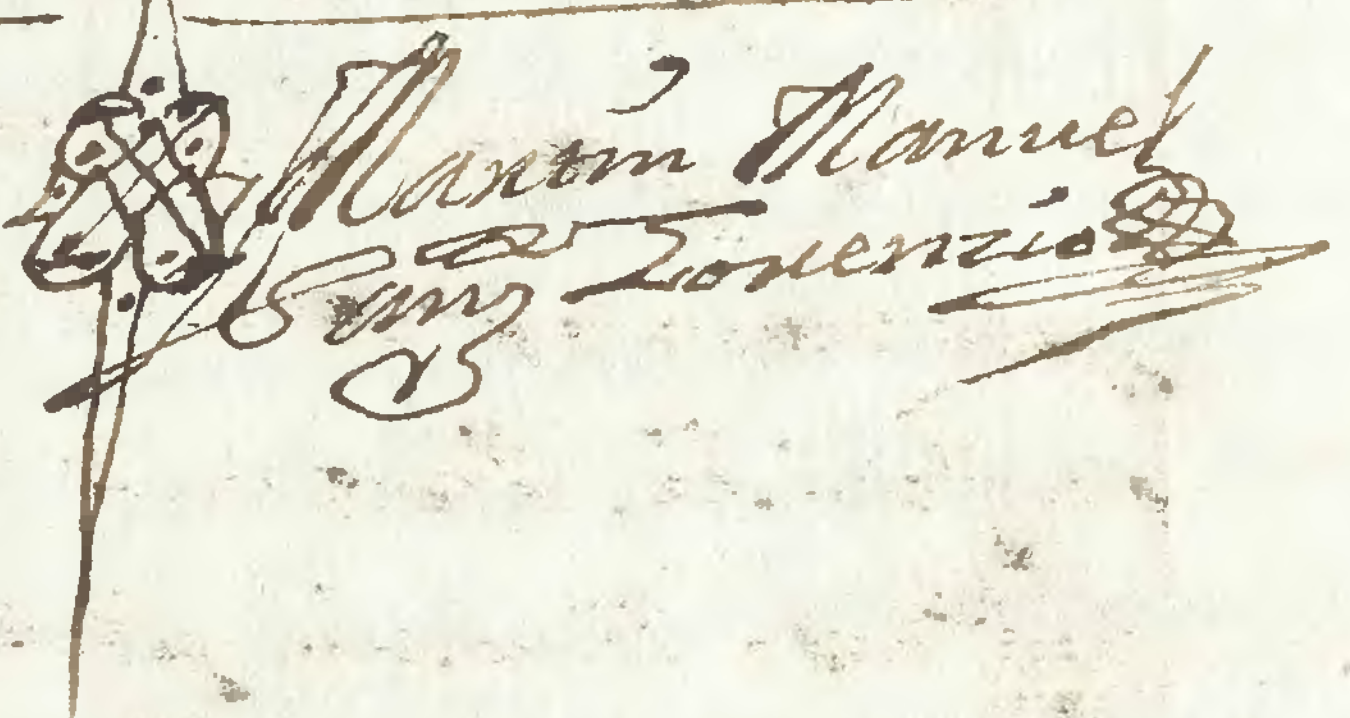 Martin Manuel
Sanz Lorenzio